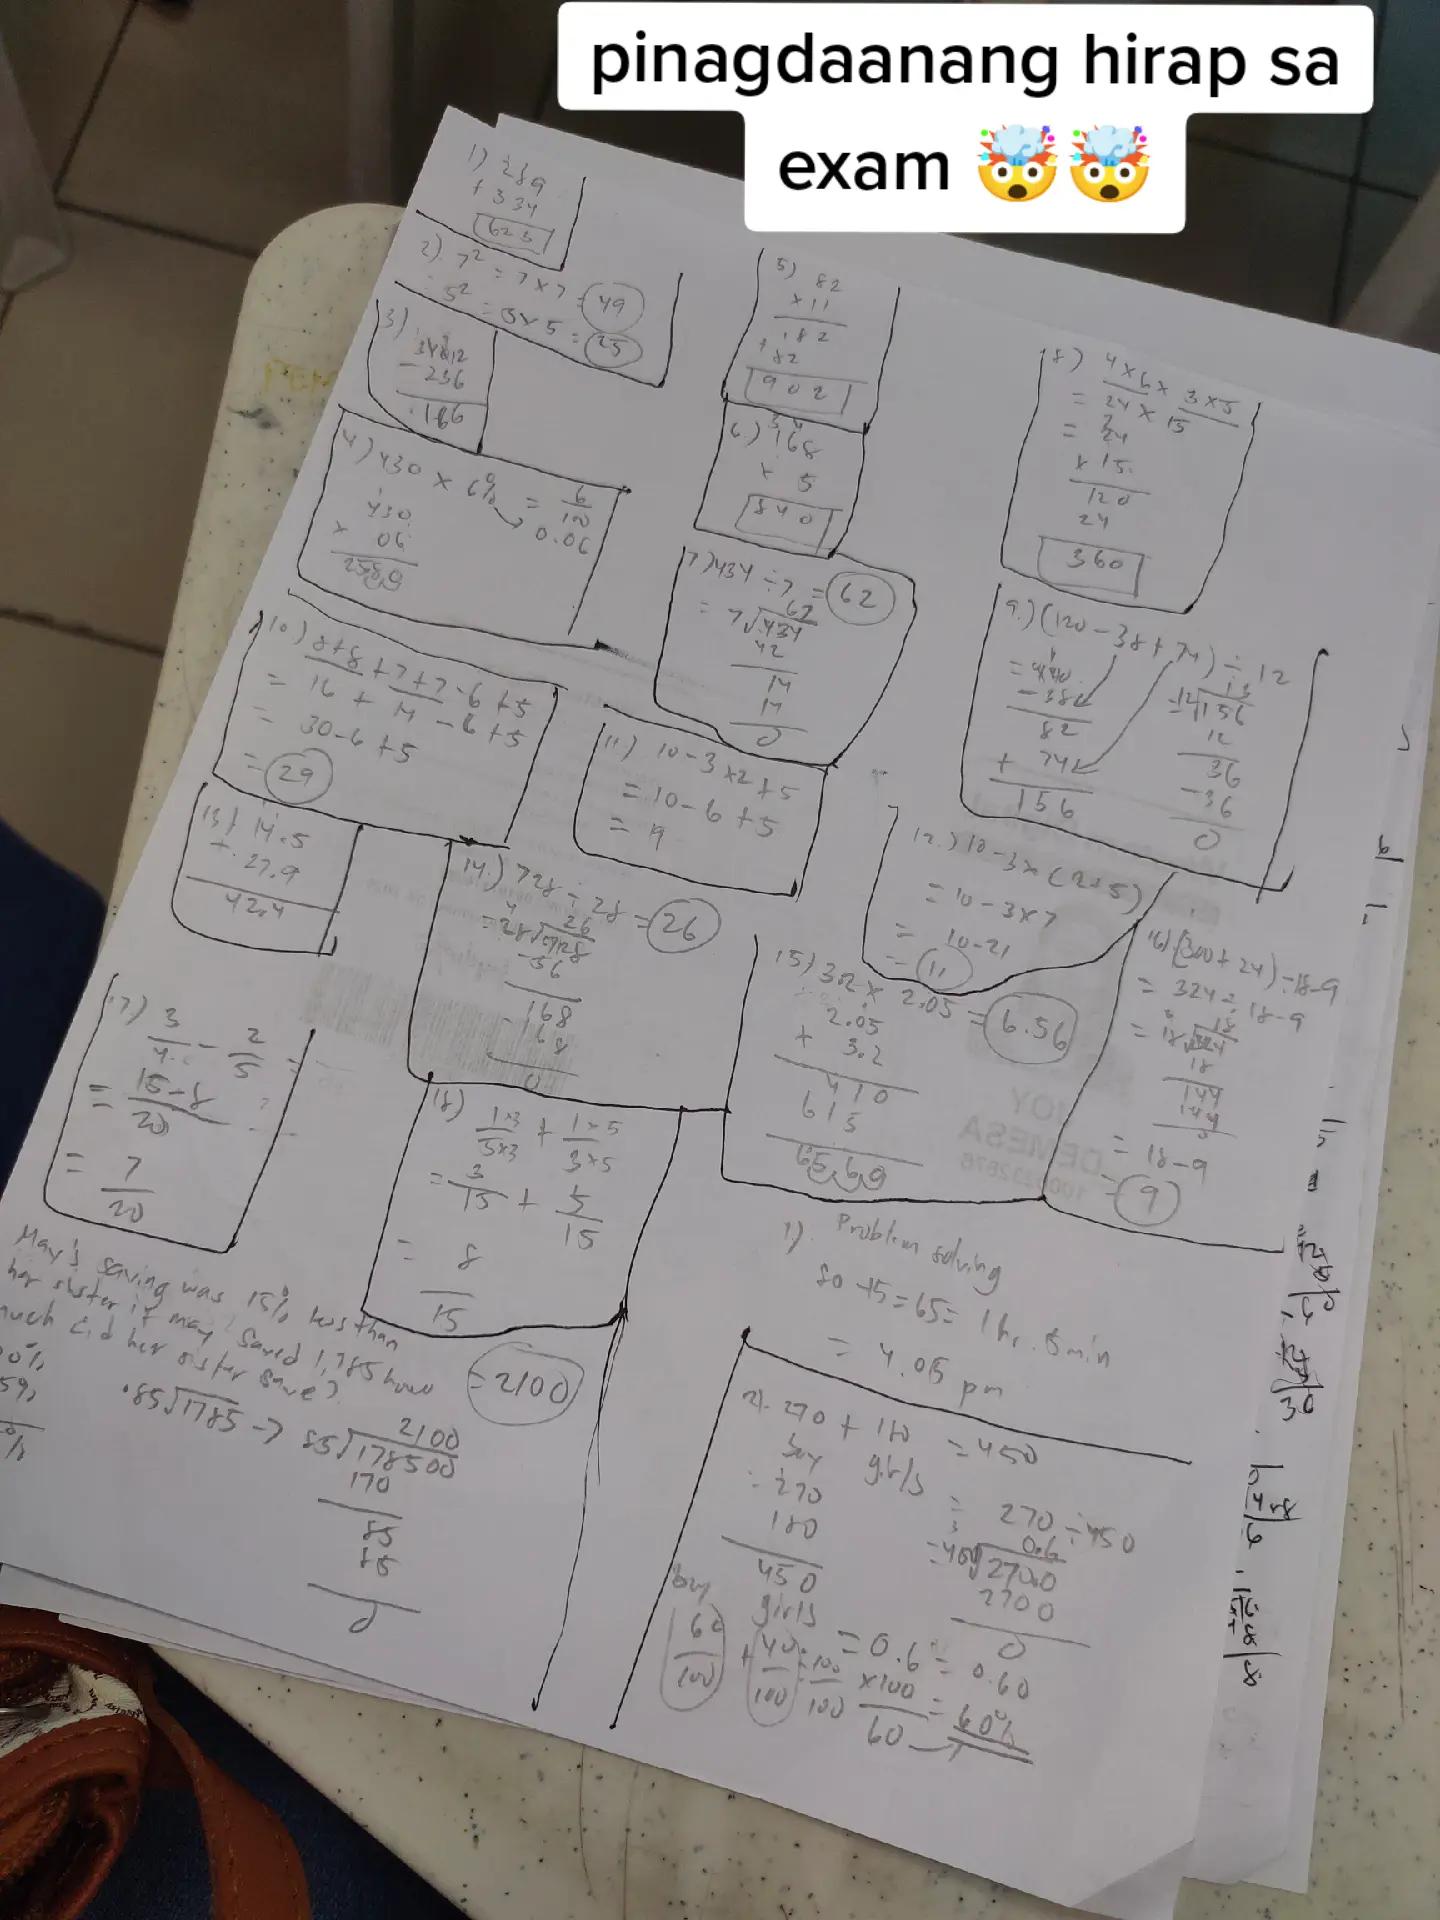 pinagdaanang hirap sa
exam 🤯🤯
1) 289
+ 334
623
2). 7² = 7 x 7 = 49
5² = 5 x 5 = 25
3)
- 236
186
4) 430 x 6% = 6
100
0.06
430
x 06
2580
5) 82
x 11
82
+ 82
902
6.) 168
x 5
840
7) 434 ÷ 7 = 62
62
= 7√434
42
14
14
0
8) 4 x 6 x 3 x 5
= 24 x 15
= 24
x 15
120
24
360
9.) (120 - 38 + 74) ÷ 12
- 38
82
+ 74
156
13
= 12√156
12
36
- 36
0
10) 8+8+7+7-6+5
= 16 + 14 - 6 + 5
= 30-6+5
= 29
11.) 10-3x2+5
= 10-6+5
= 9
12.) 10-3x(2+5)
= 10-3x7
= 10-21
= 11
13) 14.5
+ 27.9
42.4
14.) 728 ÷ 28 = 26
26
= 28√728
-56
168
- 168
0
15) 3.2 x 2.05 = 6.56
2.05
+ 3.2
410
615
16) (300+24) ÷ 18-9
= 324 ÷ 18-9
18
= 18√324
18
144
144
0
= 18-9
= 9
17) 3/4 - 2/5 =
= 15-8
20
= 7
20
18) 1x3/5x3 + 1x5/3x5
= 3/15 + 5/15
= 8
15
May's saving was 15% less than
her sister if may saved 1,785 how
much did her sister save?
= 2100
.85√1785 → 85√178500
2100
170
85
85
0
JOY
DEMESA
Problem solving
1). 80-15=65= 1 hr. 5 min
= 4.05 pm
2). 270 + 180 = 450
boy girls
= 270
180
450
= 270 ÷ 450
0.6
= 450√270.0
270 0
0
boy girls
60/100 + 40/100 = 100/100
= 0.6 = 0.60
x100
60
= 60%